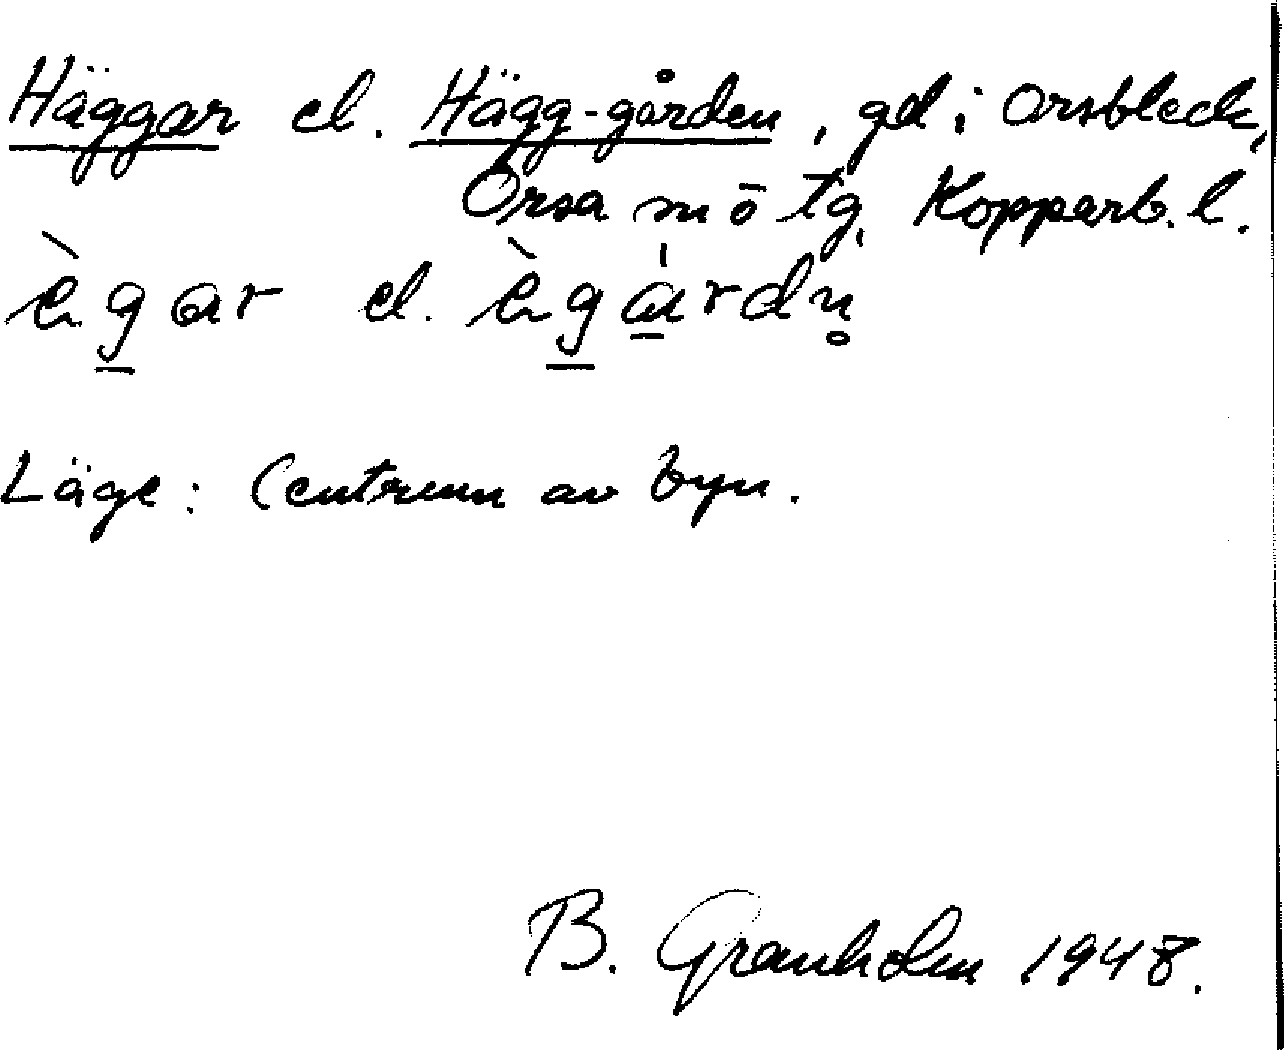 Häggar el. Hägg-gården, gd i Orsbleck,
Orsa sn ö tg, Kopparb. l.
ὲg̲ar el. ὲg̲a̲rdn̥
Läge: Centrum av byn.
B. Granholm 1948.